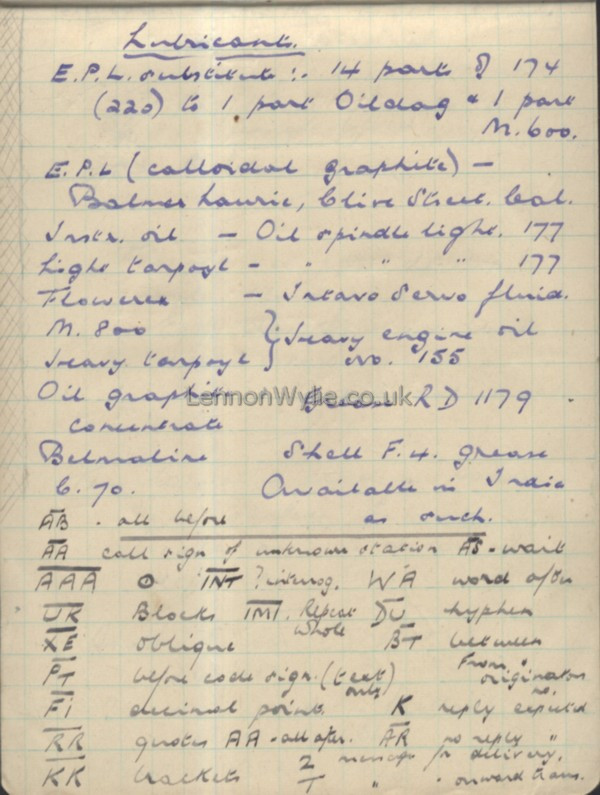 Lubricants.
E.P.L. substitute :- 14 parts of 174
(220) to 1 part Oildag & 1 part
M. 600.
E.P.L (colloidal graphite) —
Balmer Laurie, Clive Street. Cal.
Instr. oil — Oil spindle light. 177
Light torpoyl — " " " 177
Flowerex — Intavo Servo fluid.
M. 800 } Heavy engine oil
Heavy torpoyl } no. 155
Oil graphite Grease RD 1179
concentrate
Belmoline Shell F. 4. grease
C. 70. Available in India
as such.
AB . all before
AA call sign of unknown station AS - wait
AAA O INT ? interrog. WA word after
UK Blocks IMI. Repeat DU hyphen
whole
XE oblique BT between
PT before code sign. (text only) From originators no.
FI decimal point. K reply expected
RR quotes AA - all after. AR no reply "
KK brackets Z message for delivery.
T " " onward trans.
LennonWylie.co.uk